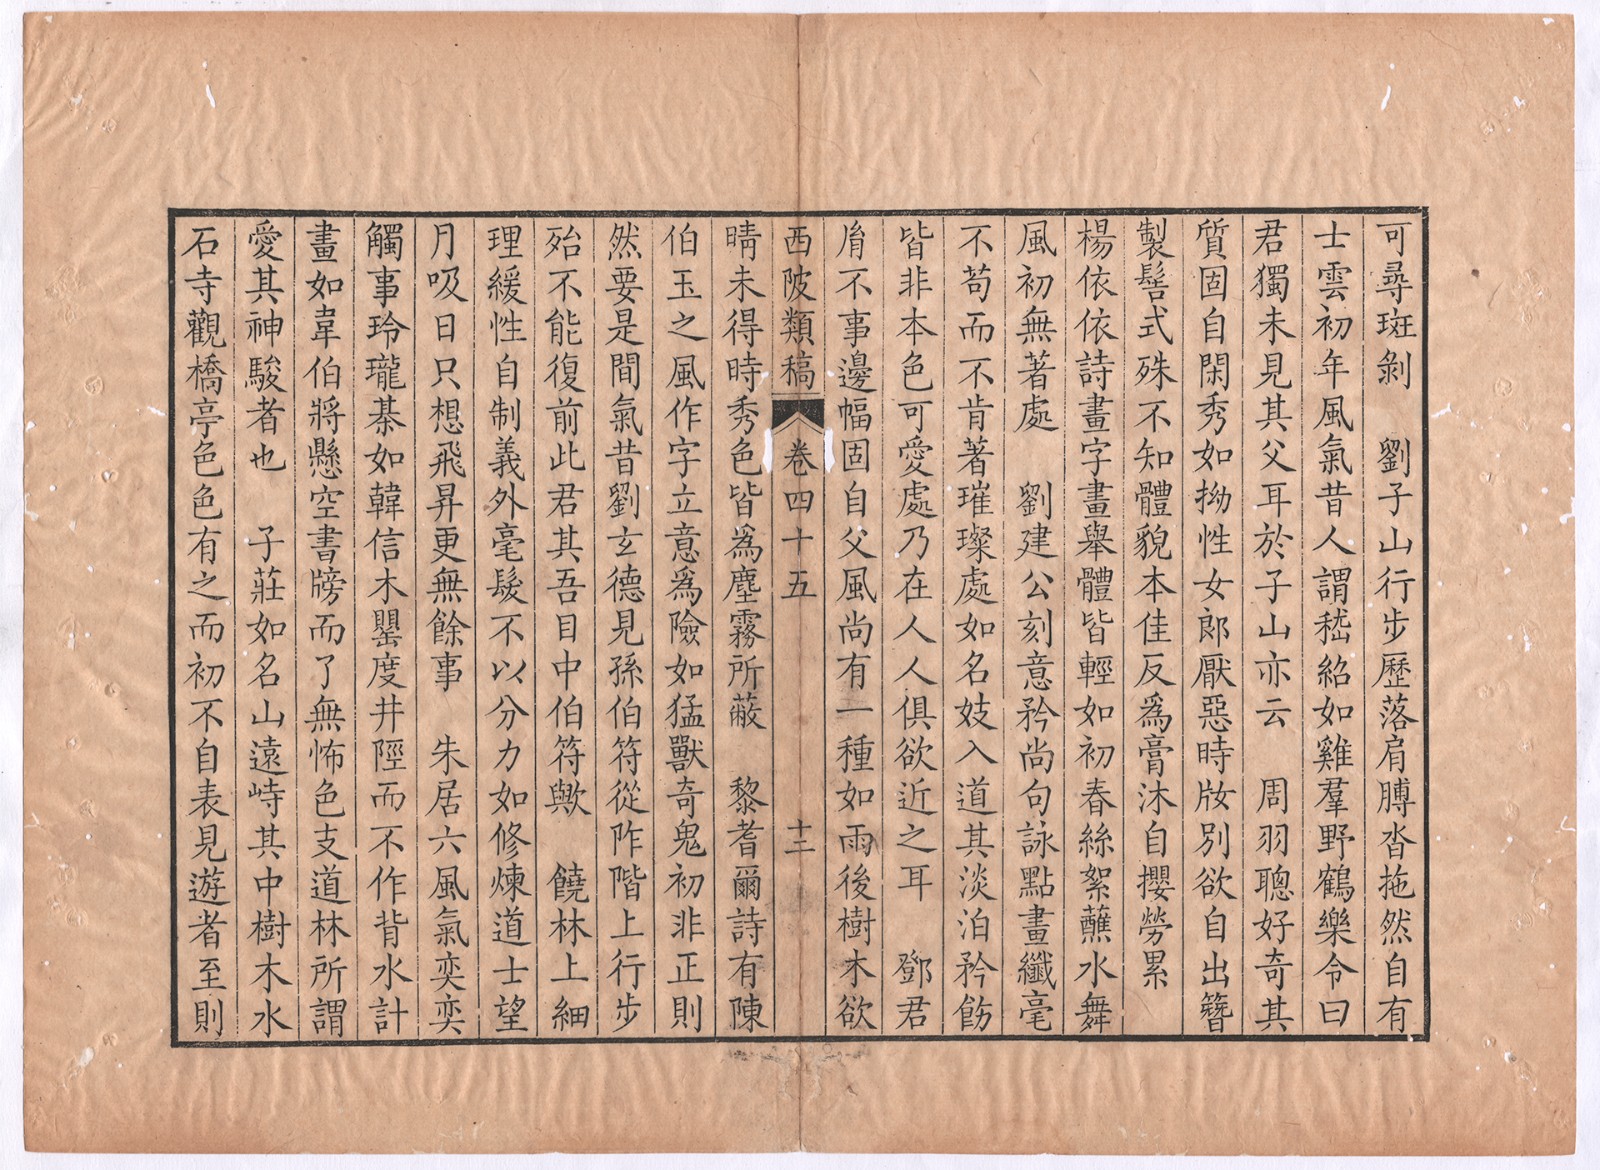 可尋斑剝　劉子山行步歷落肩膊沓拖然自有
士雲初年風氣昔人謂嵇紹如雞羣野鶴樂令曰
君獨未見其父耳於子山亦云　周羽聰好奇其
質固自閑秀如拗性女郎厭惡時妝別欲自出簪
製髻式殊不知體貌本佳反爲膏沐自攖勞累
楊依依詩畫字畫舉體皆輕如初春絲絮蘸水舞
風初無著處　劉建公刻意矜尚句詠點畫纖毫
不苟而不肯著璀璨處如名妓入道其淡泊矜飭
皆非本色可愛處乃在人人俱欲近之耳　鄧君
肩不事邊幅固自父風尚有一種如雨後樹木欲
西陂類稿　卷四十五　十二
晴未得時秀色皆爲塵霧所蔽　黎耆爾詩有陳
伯玉之風作字立意爲險如猛獸奇鬼初非正則
然要是間氣昔劉玄德見孫伯符從阼階上行步
殆不能復前此君其吾目中伯符歟　饒林上細
理緩性自制義外毫髮不以分力如修煉道士望
月吸日只想飛昇更無餘事　朱居六風氣奕奕
觸事玲瓏棊如韓信木罌度井陘而不作背水計
畫如韋伯將懸空書牓而了無怖色支道林所謂
愛其神駿者也　子莊如名山遠峙其中樹木水
石寺觀橋亭色色有之而初不自表見遊者至則